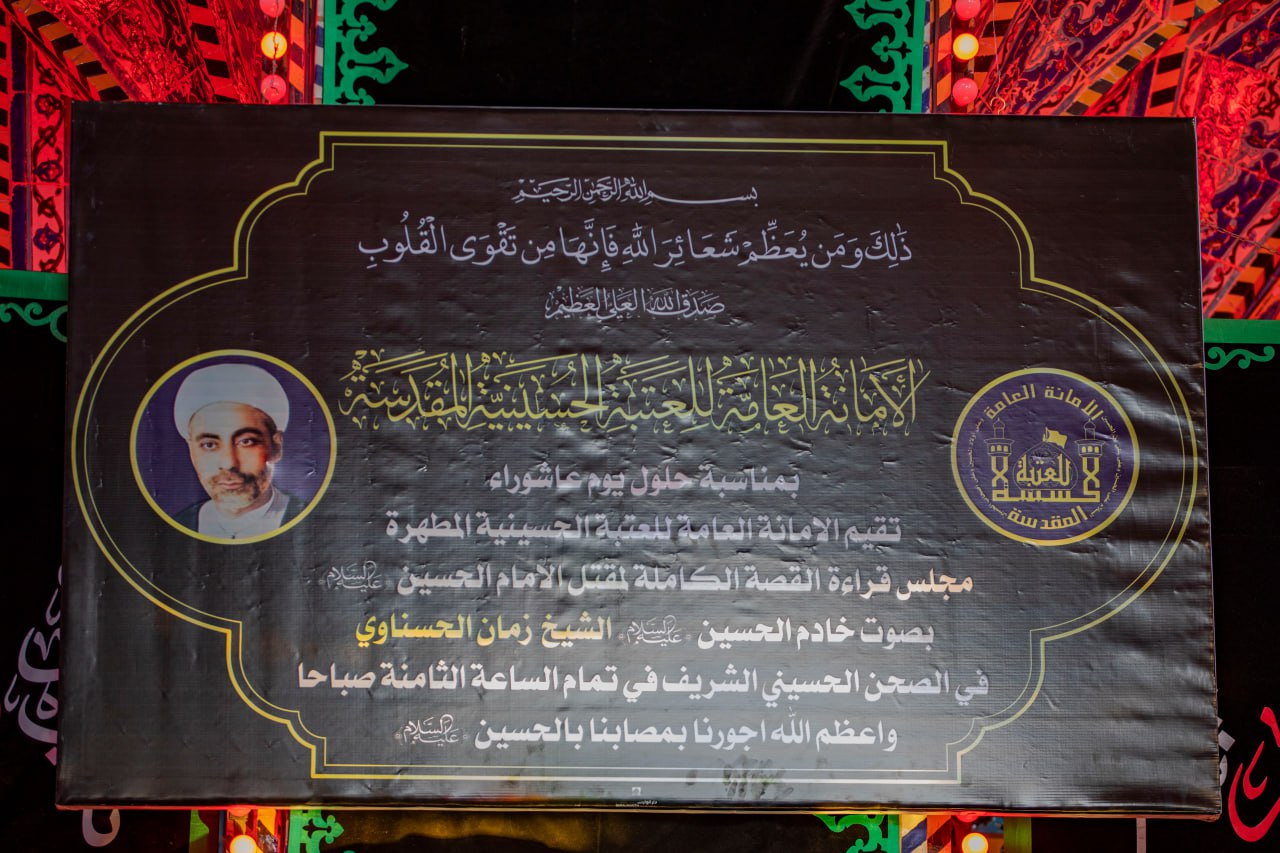 بسم الله الرحمن الرحيم
ذَٰلِكَ وَمَن يُعَظِّمْ شَعَائِرَ اللَّهِ فَإِنَّهَا مِن تَقْوَى الْقُلُوبِ
صدق الله العلي العظيم
الأَمَانَةُ العَامَّةُ لِلعَتَبَةِ الحُسَيْنِيَّةِ المُقَدَّسَةِ
الامانة العامة
للعتبة
الحسينية
المقدسة
بمناسبة حلول يوم عاشوراء
تقيم الامانة العامة للعتبة الحسينية المطهرة
مجلس قراءة القصة الكاملة لمقتل الامام الحسين عليه السلام
بصوت خادم الحسين عليه السلام الشيخ زمان الحسناوي
في الصحن الحسيني الشريف في تمام الساعة الثامنة صباحا
واعظم الله اجورنا بمصابنا بالحسين عليه السلام